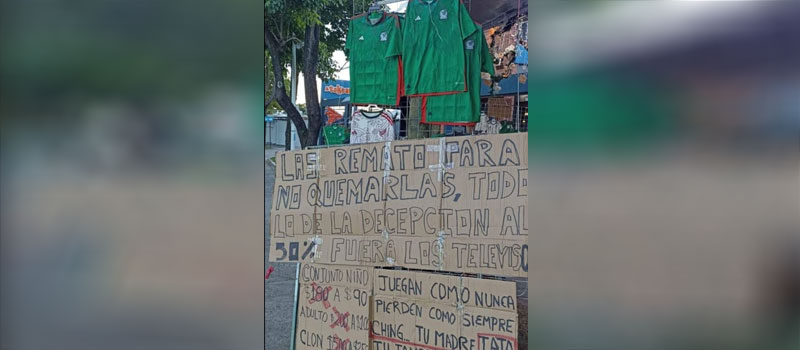 LAS REMATO PARA
NO QUEMARLAS, TODO
LO DE LA DECEPCION AL
50% FUERA LOS TELEVISO
CONJUNTO NIÑO
$180 A $90
ADULTO $200 A $100
CLON $500 A
JUEGAN COMO NUNCA
PIERDEN COMO SIEMPRE
CHING.. TU MADRE TATA
TU TAMB